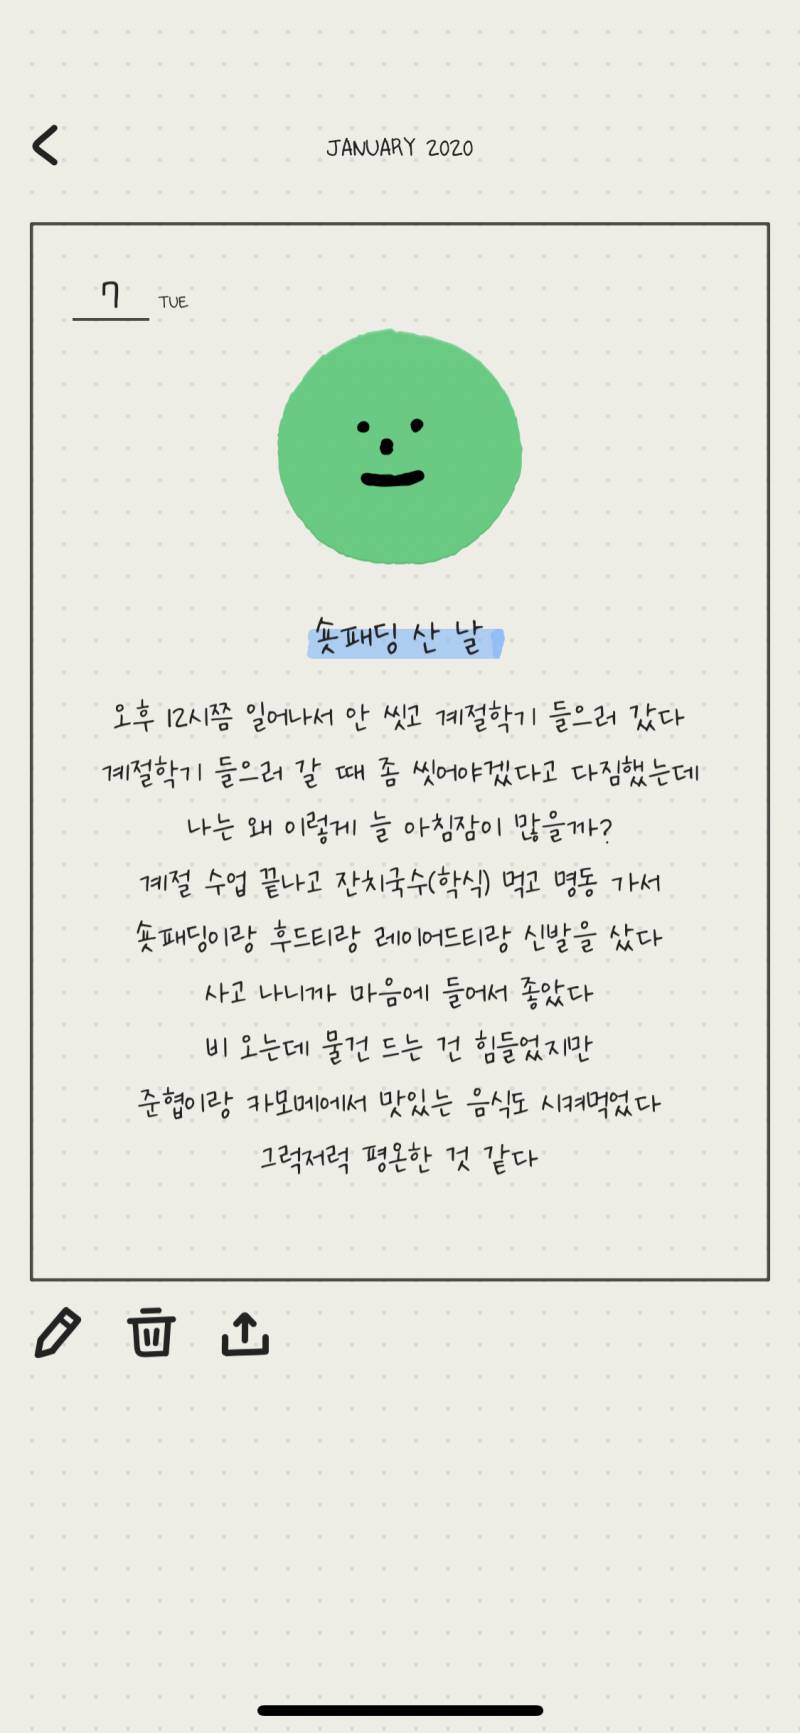 JANUARY 2020
7 TUE
숏패딩 산 날
오후 12시쯤 일어나서 안 씻고 계절학기 들으러 갔다
계절학기 들으러 갈 때 좀 씻어야겠다고 다짐했는데
나는 왜 이렇게 늘 아침잠이 많을까?
계절 수업 끝나고 잔치국수(학식) 먹고 명동 가서
숏패딩이랑 후드티랑 레이어드티랑 신발을 샀다
사고 나니까 마음에 들어서 좋았다
비 오는데 물건 드는 건 힘들었지만
준협이랑 카모메에서 맛있는 음식도 시켜먹었다
그럭저럭 평온한 것 같다